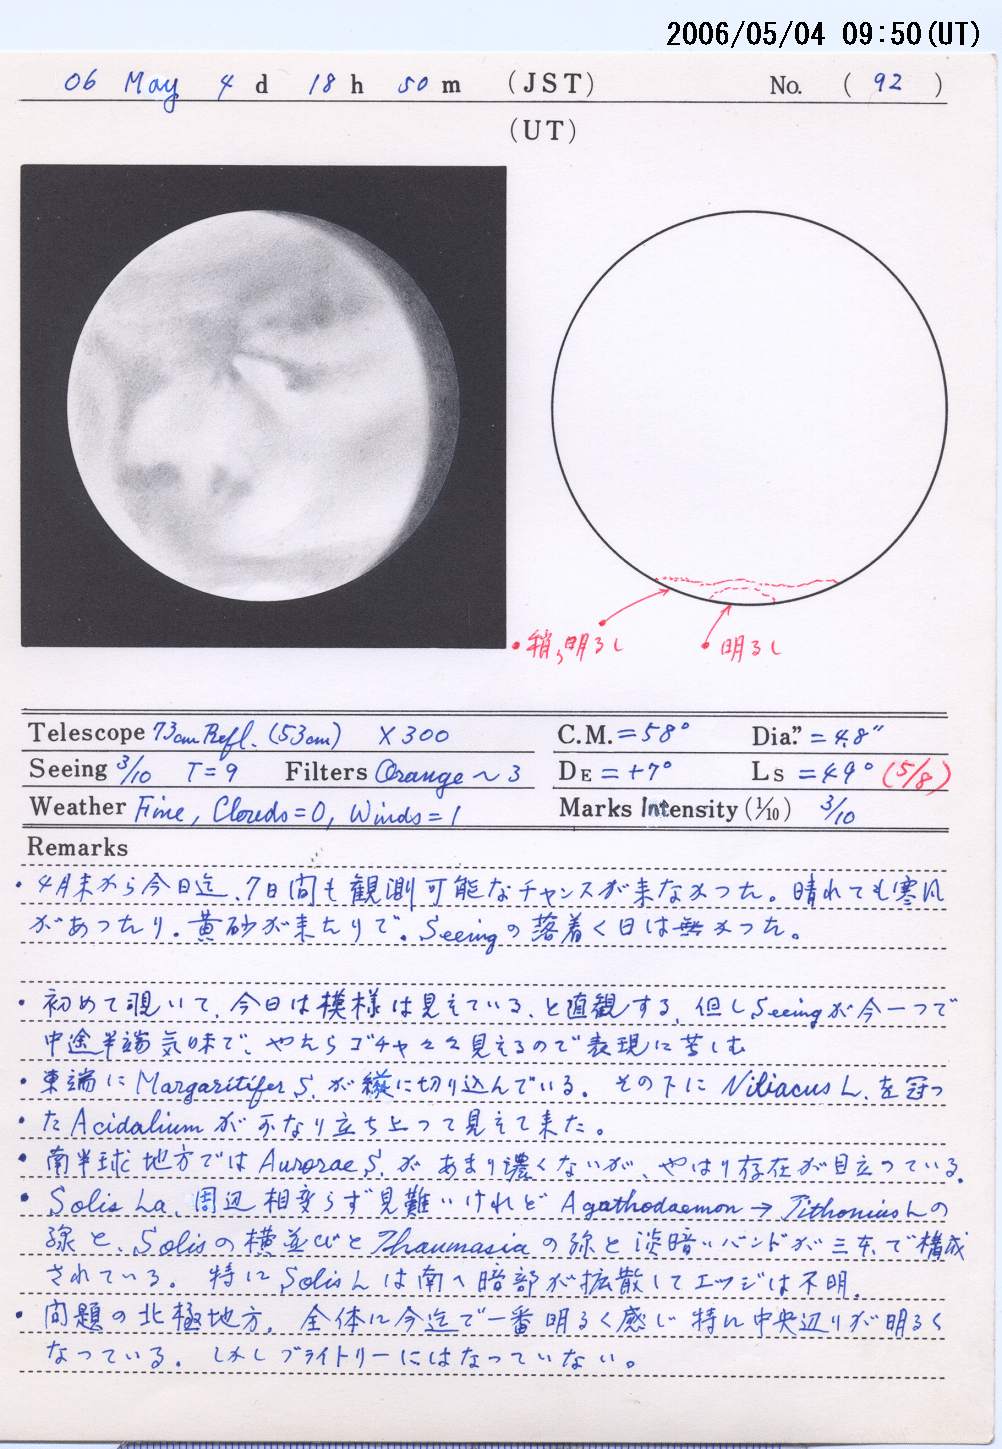 2006/05/04 09:50(UT)
06 May 4 d 18 h 50 m (JST) No. (92)
(UT)
・稍々明るし ・明るし
Telescope 73cm Refl. (53cm) ×300 C.M.=58° Dia."=4.8"
Seeing 3/10 T=9 Filters Orange~3 DE=+7° LS=49° (5/8)
Weather Fine, Clouds=0, Winds=1 Marks Intensity(1/10) 3/10
Remarks
・4月末から今日迄、7日間も観測可能なチャンスが来なかった。晴れても寒風
があったり、黄砂が来たりで、Seeingの落着く日は無かった。
・初めて覗いて、今日は模様は見えている、と直観する、但しSeeingが今一つで
中途半端気味で、やたらゴチャゴチャ見えるので表現に苦しむ
・東端にMargaritifer S.が縦に切り込んでいる。その下にNiliacus L.を冠っ
・たAcidaliumがかなり立ち上って見えて来た。
・南半球地方ではAurorae S.があまり濃くないが、やはり存在が目立っている。
・Solis La.周辺相変らず見難いけれどAgathodaemon→Tithonius Lの
線と、Solisの横並びとThaumasiaの線と淡暗いバンドが三本で構成
されている。特にSolis Lは南へ暗部が拡散してエッジは不明。
・問題の北極地方。全体に今迄で一番明るく感じ特に中央辺りが明るく
なっている。しかしブライトリーにはなっていない。